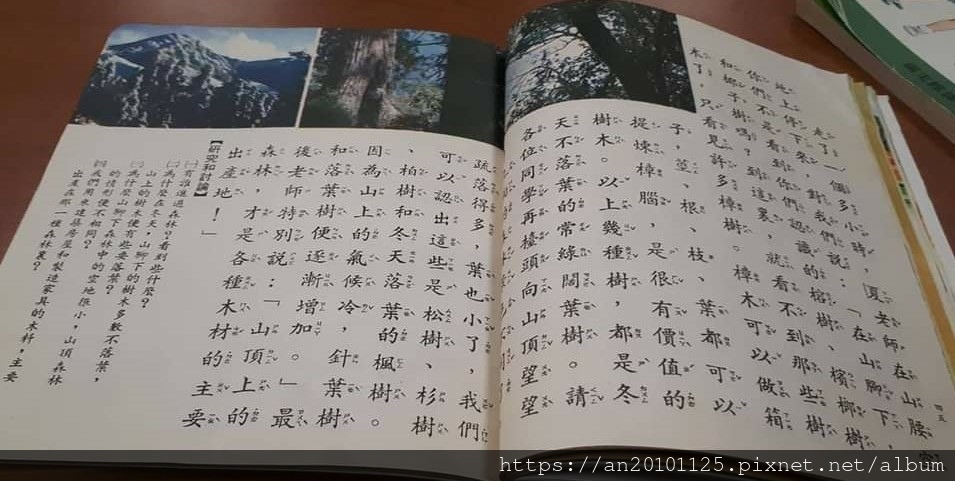 走了一個多小時,夏老師在山腰空
地上停下來,對我們說:「在山腳下,
你們不是看到你認識的榕樹、檳榔樹
和椰子樹嗎?到這裏,就看不到那些樹
木了,只看見許多樟樹。樟木可以做箱
子,莖、根、枝、葉都可以
提煉樟腦,是很有價值的
樹木。以上幾種樹,都是冬
天不落葉的常綠闊葉樹。請
各位同學再擡頭向山頂望
四五
疏落得多,葉也小了,我們
可以認出這些是松樹、杉樹
、柏樹和冬天落葉的楓樹。
因為山上的氣候冷,針葉樹
和落葉樹便漸增加。」最
後老師特別說:「山頂上的
森林,才是各種木材的主要
出產地!」
【研究和討論】
㈠有誰進過森林?看到些什麼?
㈡為什麼在冬天,山腳下的樹木多數不落葉,
山上的樹木便有些要落葉?
㈢為什麼山腳下森林中的空地很小,山頂森林
的情形便不相同?
㈣我們用來建築房屋和製造家具的木料,主要
出產在那一種森林裏?
https://an20101125.pixnet.net/album